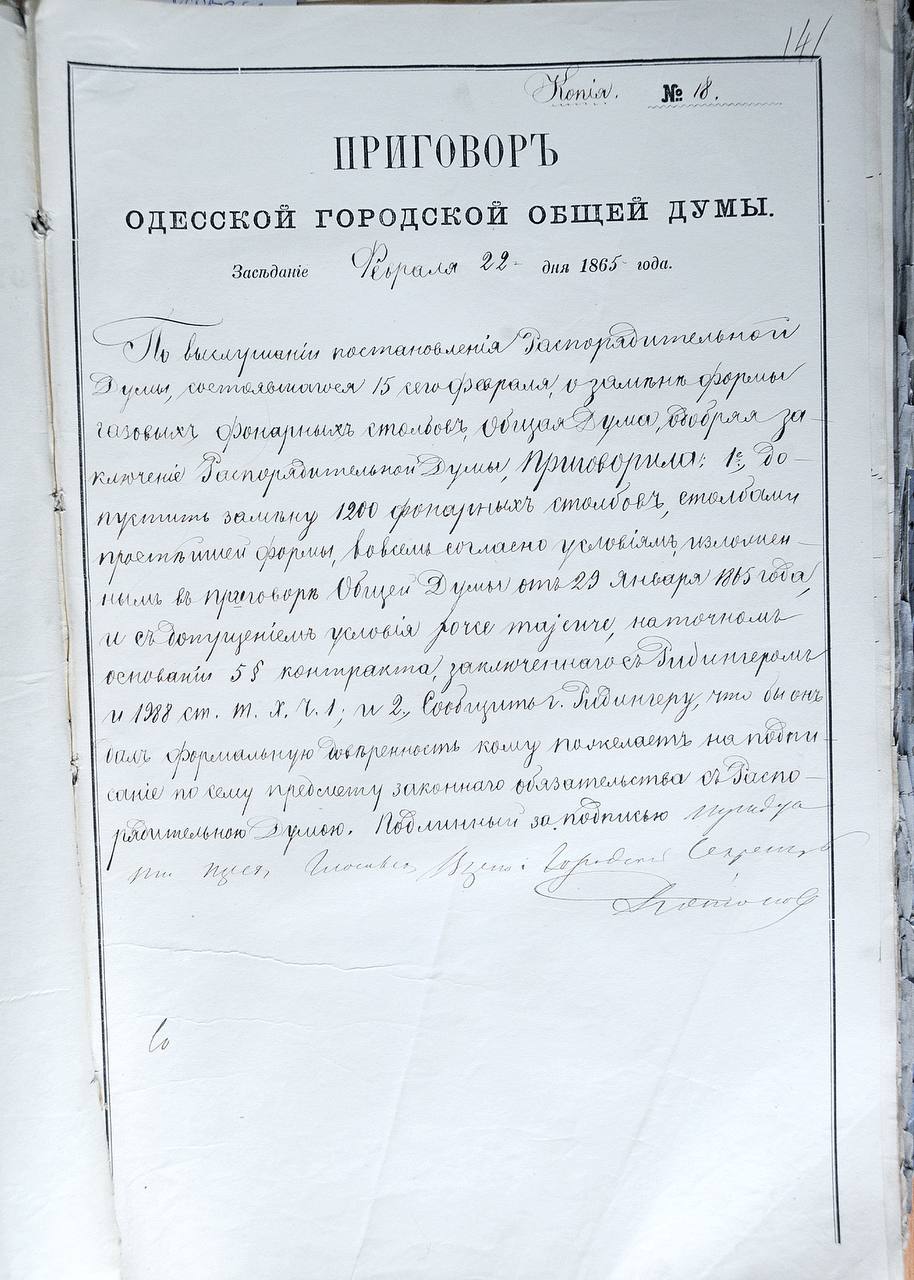 141
Копія. № 18.
ПРИГОВОРЪ
ОДЕССКОЙ ГОРОДСКОЙ ОБЩЕЙ ДУМЫ.
Засѣданіе Февраля 22 дня 1865 года.
По выслушаніи постановленія Распорядительной
Думы, состоявшагося 15 сего Февраля, о замѣнѣ формы
газовыхъ фонарныхъ столбовъ, Общая Дума, одобряя за-
ключеніе Распорядительной Думы, Приговорила: 1е, до-
пустить замѣну 1200 фонарныхъ столбовъ, столбами
простѣйшей формы, вовсемъ согласно условіямъ, изложен-
нымъ въ приговорѣ Общей Думы отъ 29 Января 1865 года,
и съ допущеніемъ условія, на точномъ
основаніи 5 § контракта, заключеннаго съ Ридингеромъ
и 1988 ст. т. X. ч. 1; и 2., Сообщить г. Ридингеру, что бы онъ
далъ формальную довѣренность кому пожелаетъ на подпи-
саніе по сему предмету законнаго обязательства съ Распо-
рядительною Думою. Подлинный за подписью
Городской Секретарь